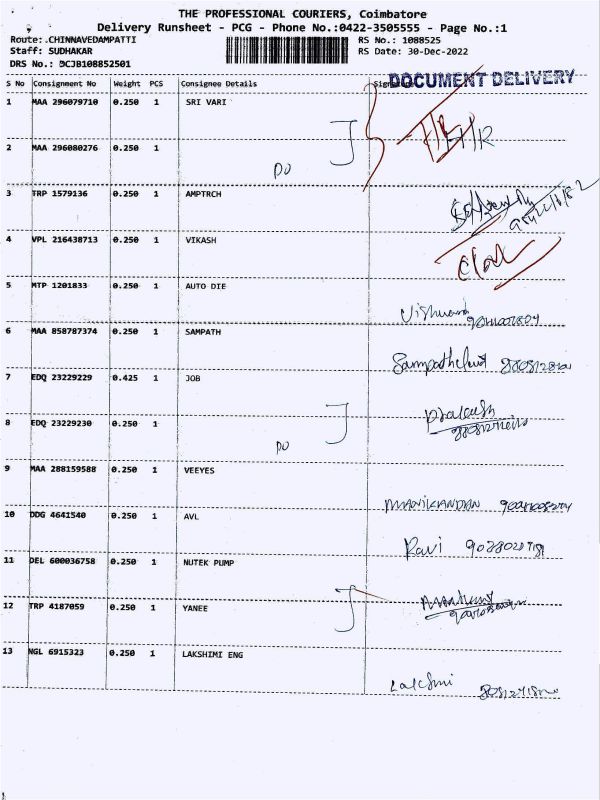 THE PROFESSIONAL COURIERS, Coimbatore
Delivery Runsheet - PCG - Phone No.:0422-3505555 - Page No.:1
Route:.CHINNAVEDAMPATTI RS No.: 1088525
Staff: SUDHAKAR RS Date: 30-Dec-2022
DRS No.: DCJB108852501
DOCUMENT DELIVERY
S No Consignment No Weight PCS Consignee Details
1 MAA 296079710 0.250 1 SRI VARI
2 MAA 296080276 0.250 1
DO
3 TRP 1579136 0.250 1 AMPTRCH
4 VPL 216438713 0.250 1 VIKASH
5 MTP 1201833 0.250 1 AUTO DIE
6 MAA 858787374 0.250 1 SAMPATH
7 EDQ 23229229 0.425 1 JOB
8 EDQ 23229230 0.250 1
Prakash
DO
9 MAA 288159588 0.250 1 VEEYES
MANIKANDAN
10 DDG 4641540 0.250 1 AVL
Ravi
11 DEL 600036758 0.250 1 NUTEK PUMP
12 TRP 4187059 0.250 1 YANEE
13 NGL 6915323 0.250 1 LAKSHIMI ENG
Lakshmi